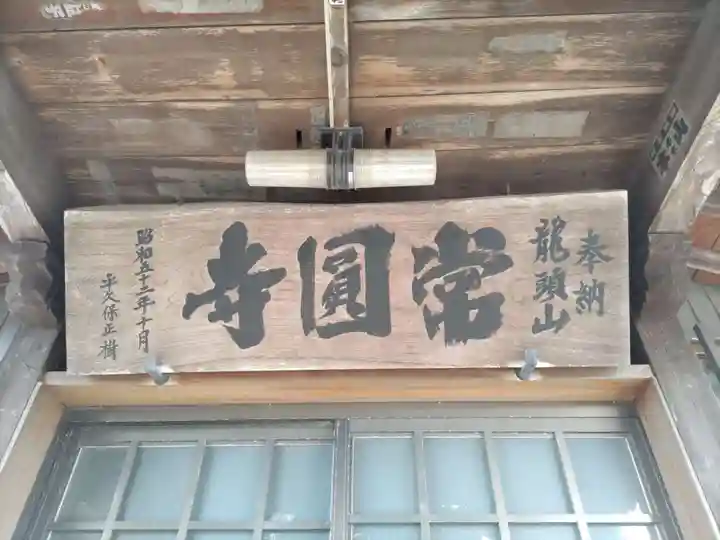 奉納
龍頭山
常圓寺
昭和五十三年十月
平久保正樹